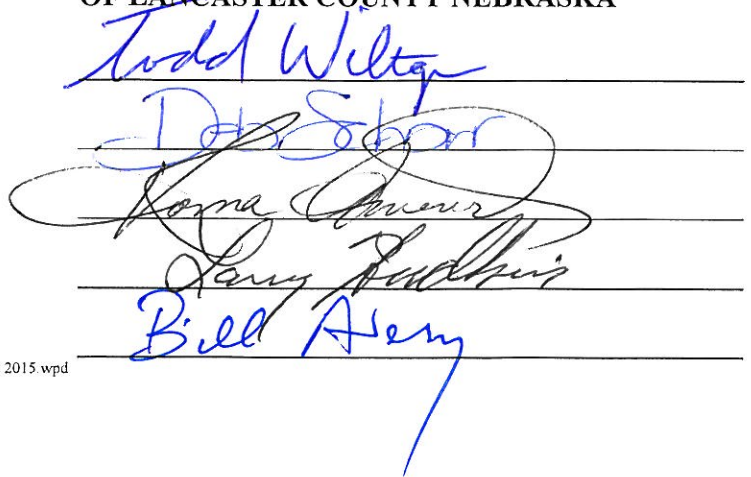 OF LANCASTER COUNTY NEBRASKA
Todd Wiltgen
Deb Schorr
Roma Amundson
Larry Hudkins
Bill Avery
2015.wpd